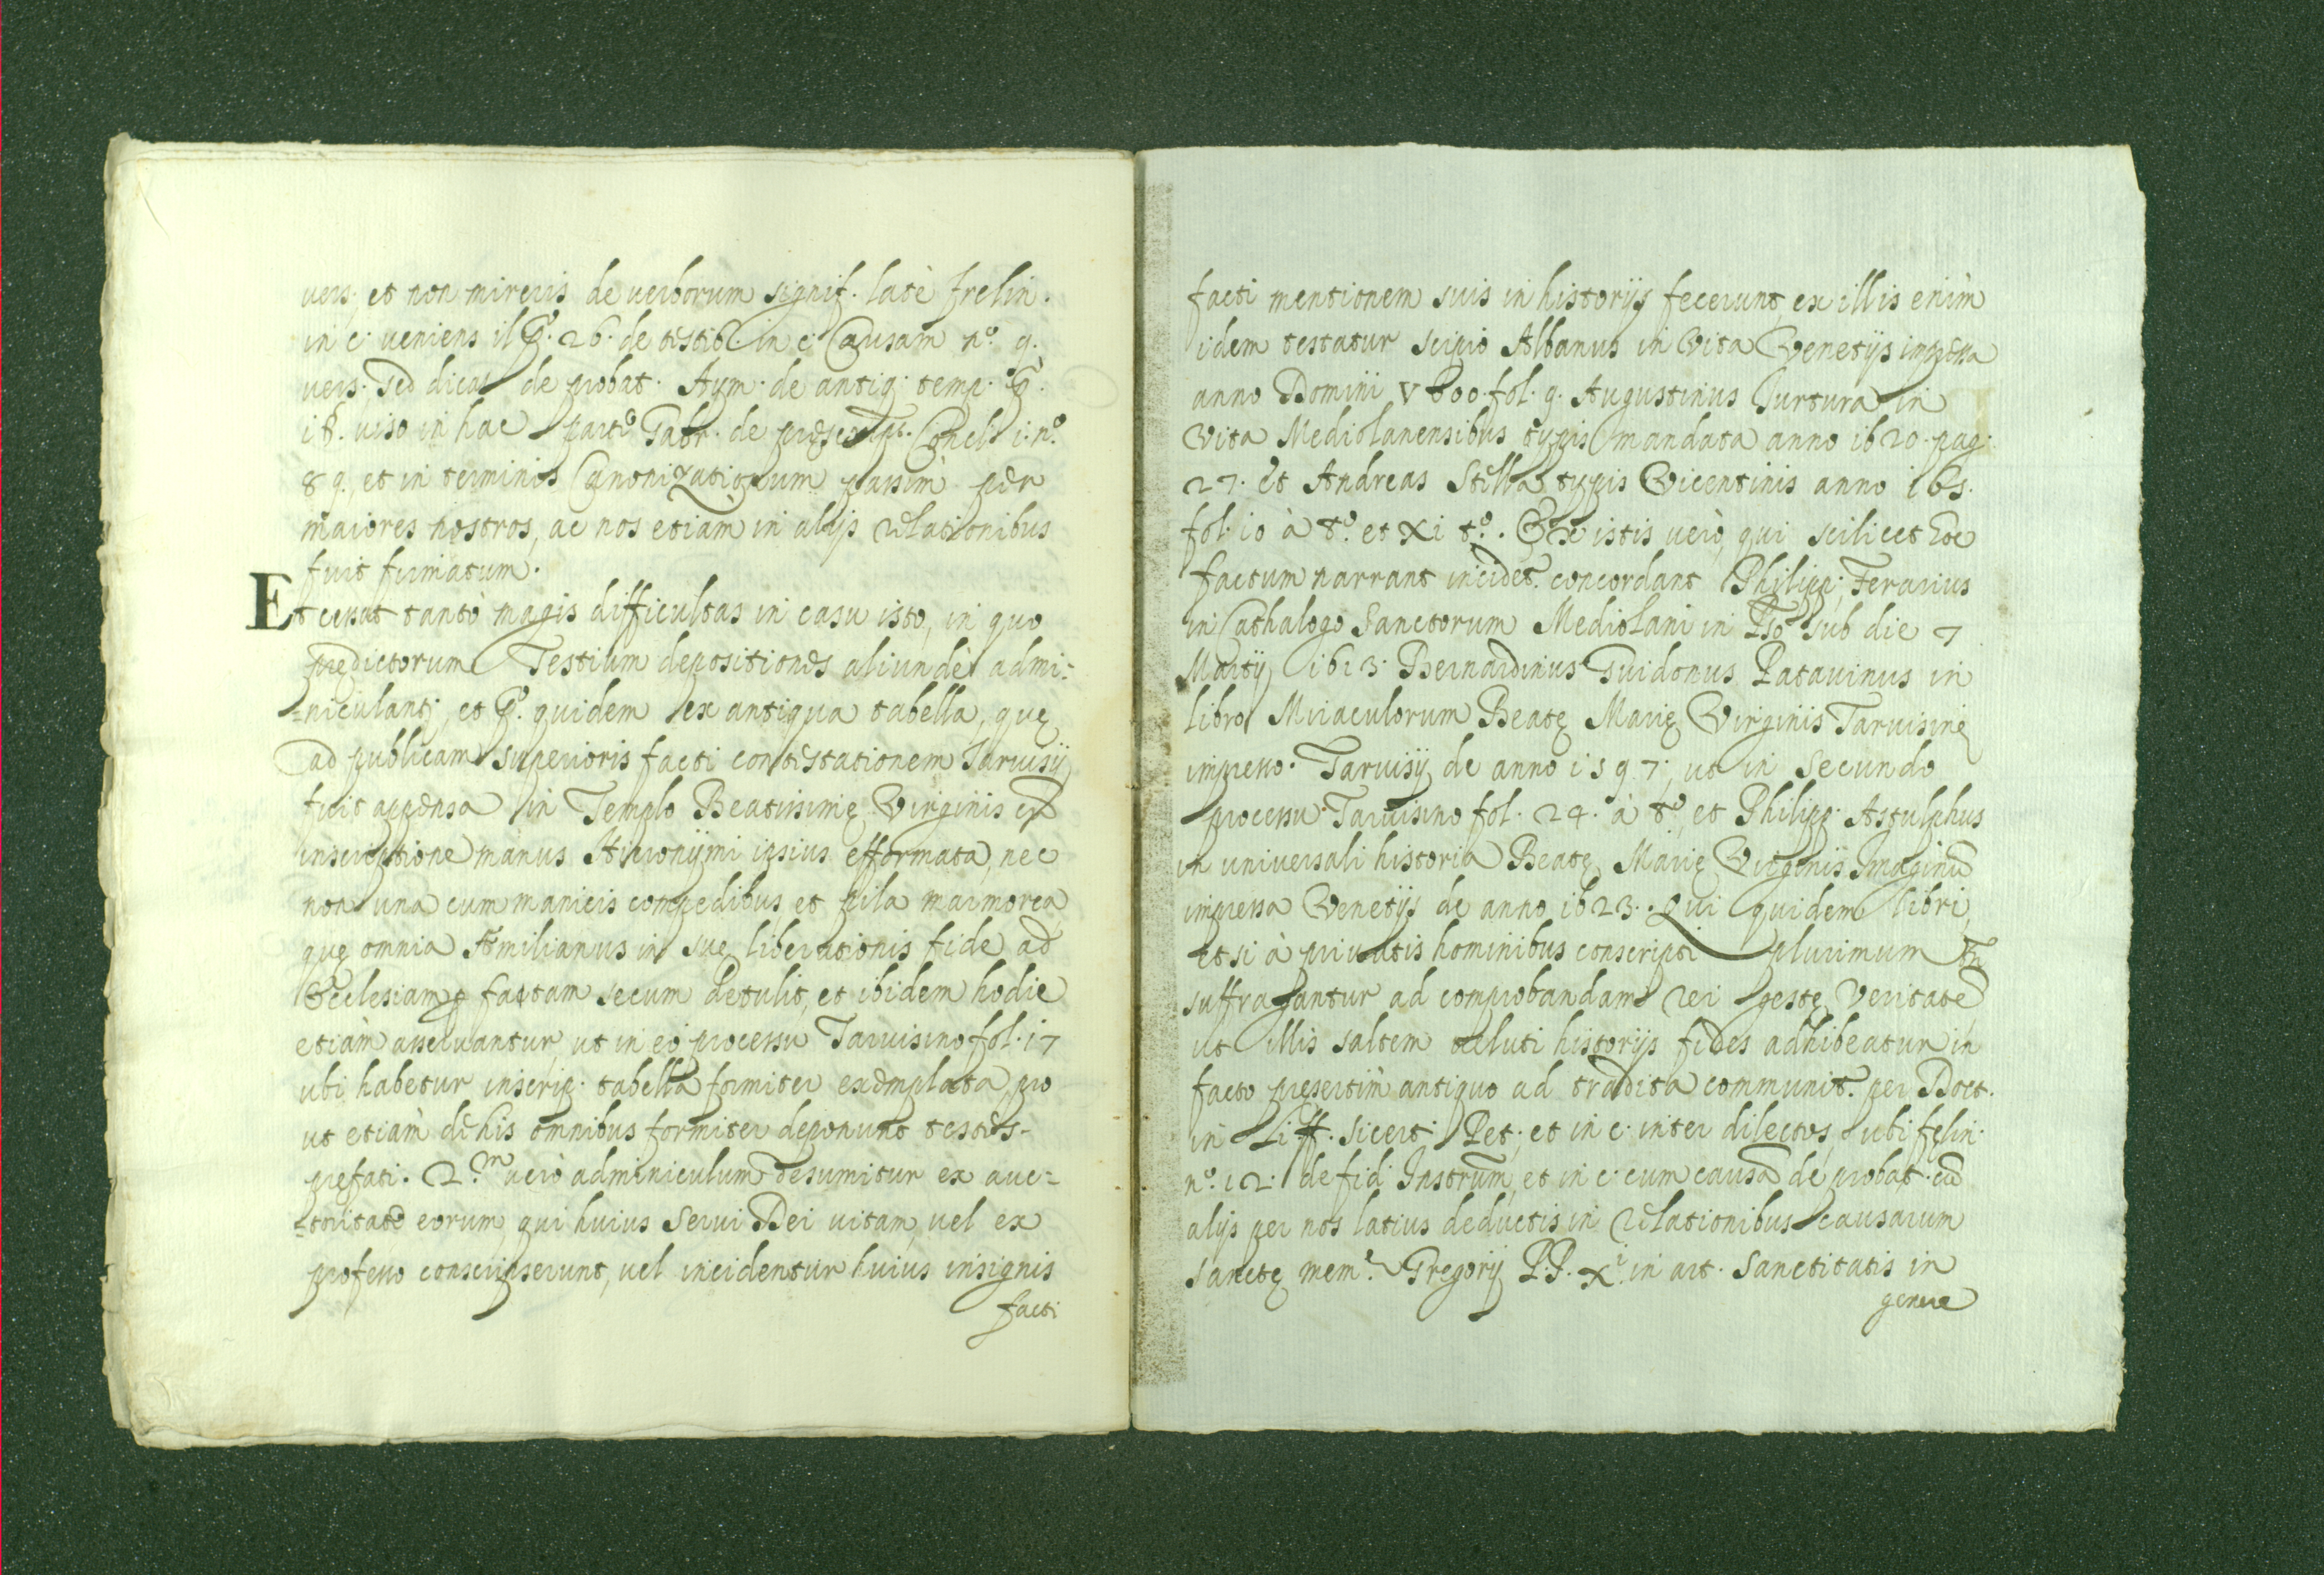 vers. et non mireris de verborum signif. latè frelin.
in c. veniens il p.º 26. de testib. in c. Causam n.º 9.
vers. sed dicas de probat. Aym. de antiq. temp. p.
viso in hac parte Gabr. de prescript. Concl. i. n.º
89. et in terminis Canonizationum passim per
maiores nostros, ac nos etiam in alijs relationibus
fuit firmatum.
Et cessat tantò magis difficultas in casu isto, in quo
prędictorum Testium depositiones aliundè admi=
=niculantʳ, et p.º quidem ex antiqua tabella, quę
ad publicam superioris facti contestationem Taruisij
fuit appensa in Templo Beatissimę Virginis ex
inscriptione manus Hieronijmi ipsius efformata, nec
non una cum manicis compedibus et pila marmorea
quę omnia Ęmilianus in suę liberationis fide ad
Ecclesiam p factam secum detulit, et ibidem hodie
etiàm asservantur, ut in eo processu Taruisino fol. i7
ubi habetur inscrip. tabella formiter exemplata, pro
ut etiàm de his omnibus formiter deponunt testes-
pręfati. 2.ᵐ verò adminiculum desumitur ex auc=
=toritate eorum, qui huius Serui Dei uitam, vel ex
professo conscripserunt, vel incidenter huius insignis
facti
facti mentionem suis in historijs fecerunt, ex illis enim
idem testatur Scipio Albanus in Vita Venetijs impressa
anno Domini fol. 9. Augustinus Turtura in
Vita Mediolanensibus typis mandata anno i620. pag.
27. et Andreas Stella typis Vicentinis anno
fol. i0 à tº. et xi tº. Ex istis verò, qui scilicet hoc
factum narrant incidet. concordant Philipp. Ferarius
in Cathalogo Sanctorum Mediolani in sub die 7
Martij i6i3. Bernardinus Guidonus Patauinus in
libro Miraculorum Beatę Marię Virginis Taruisinę
impresso. Taruisij de anno i597. ut in secundo
processu Taruisino fol. 24. à tº, et Philipp. Astulphus
in universali historia Beatę Marię Virginis Imaginū
impressa Venetijs de anno i623. Qui quidem libri,
etsi à priuatis hominibus conscripti plurimum tn̄
suffragantur ad comprobandam rei gestę Veritatē
ut illis saltem veluti historijs fides adhibeatur in
facto pręsertim antiquo ad tradita communit. per Doct.
in L. si cert. Pet. et in c. inter dilectos ubi felin.
n.º i2. de fid. Instrum, et in c. cum causā de probat. cū
alijs per nos latius deductis in relationibus causarum
Sanctę mem.ę Gregorij P.P. Xⁱ in art. Sanctitatis in
genere